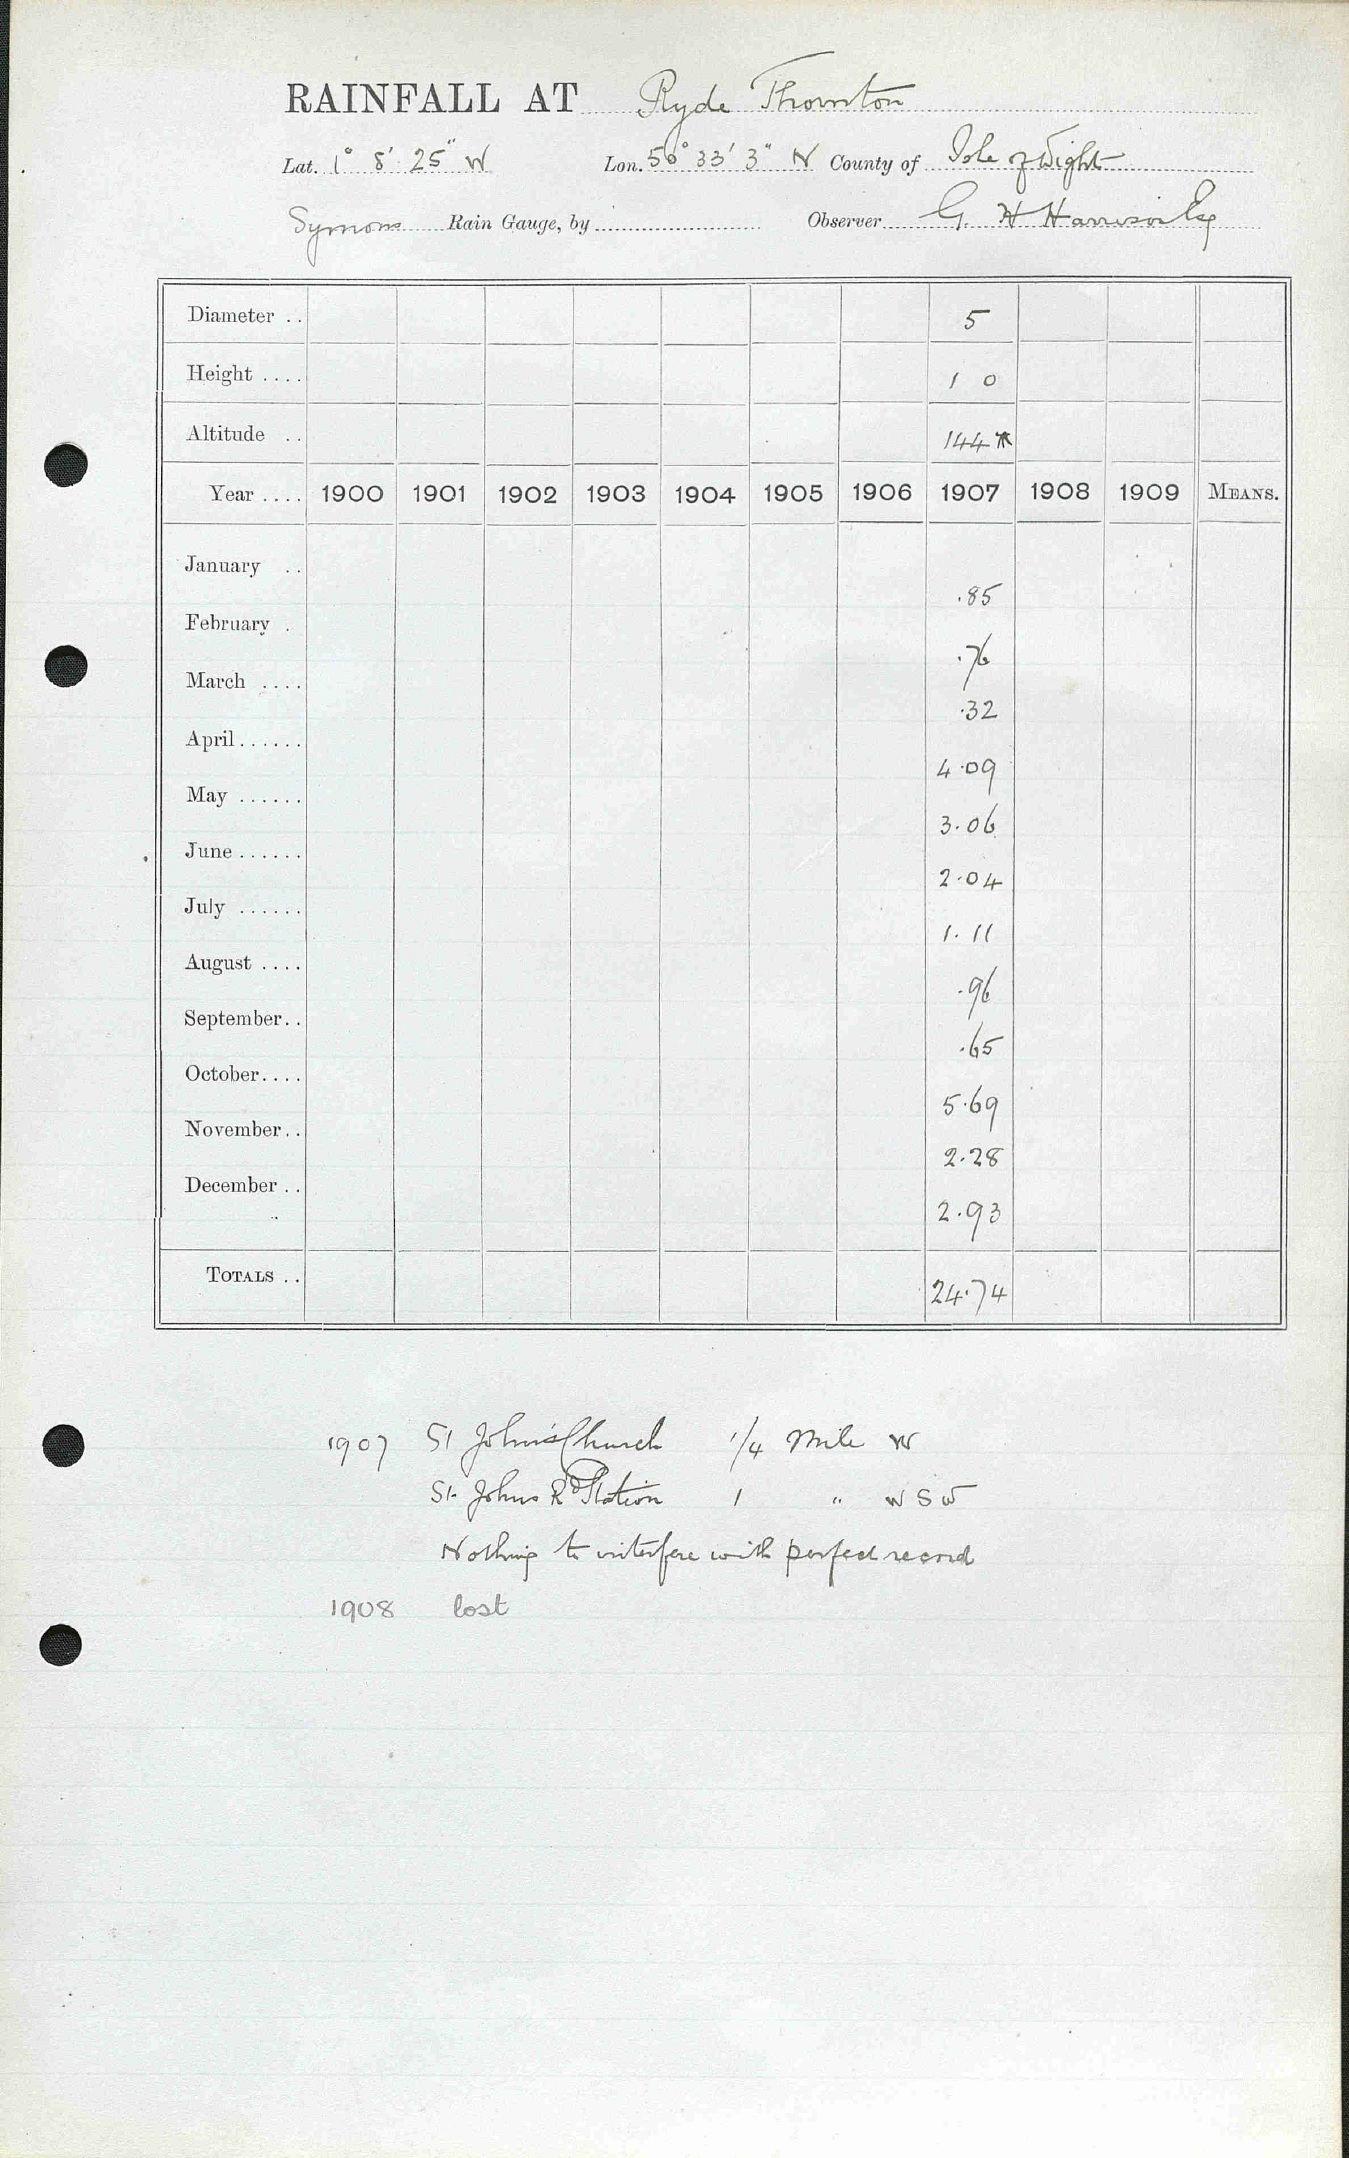 RAINFALL AT Ryde Thornton
Lat. 1° 8' 25" W Lon. 50° 33' 3" N County of Isle of Wight
Symons Rain Gauge, by Observer G. H Harrison Esq
Diameter .. 5
Height .... 1 0
Altitude .. 144
Year .... 1900 1901 1902 1903 1904 1905 1906 1907 1908 1909 MEANS.
January .. .85
February . .76
March .... .32
April...... 4.09
May ...... 3.06
June ...... 2.04
July ...... 1.11
August .... .96
September.. .65
October.... 5.69
November.. 2.28
December .. 2.93
TOTALS .. 24.74
1907 St John's Church 1/4 Mile W
St. Johns Rd Station 1 " W S W
Nothing to interfere with perfect record
1908 lost